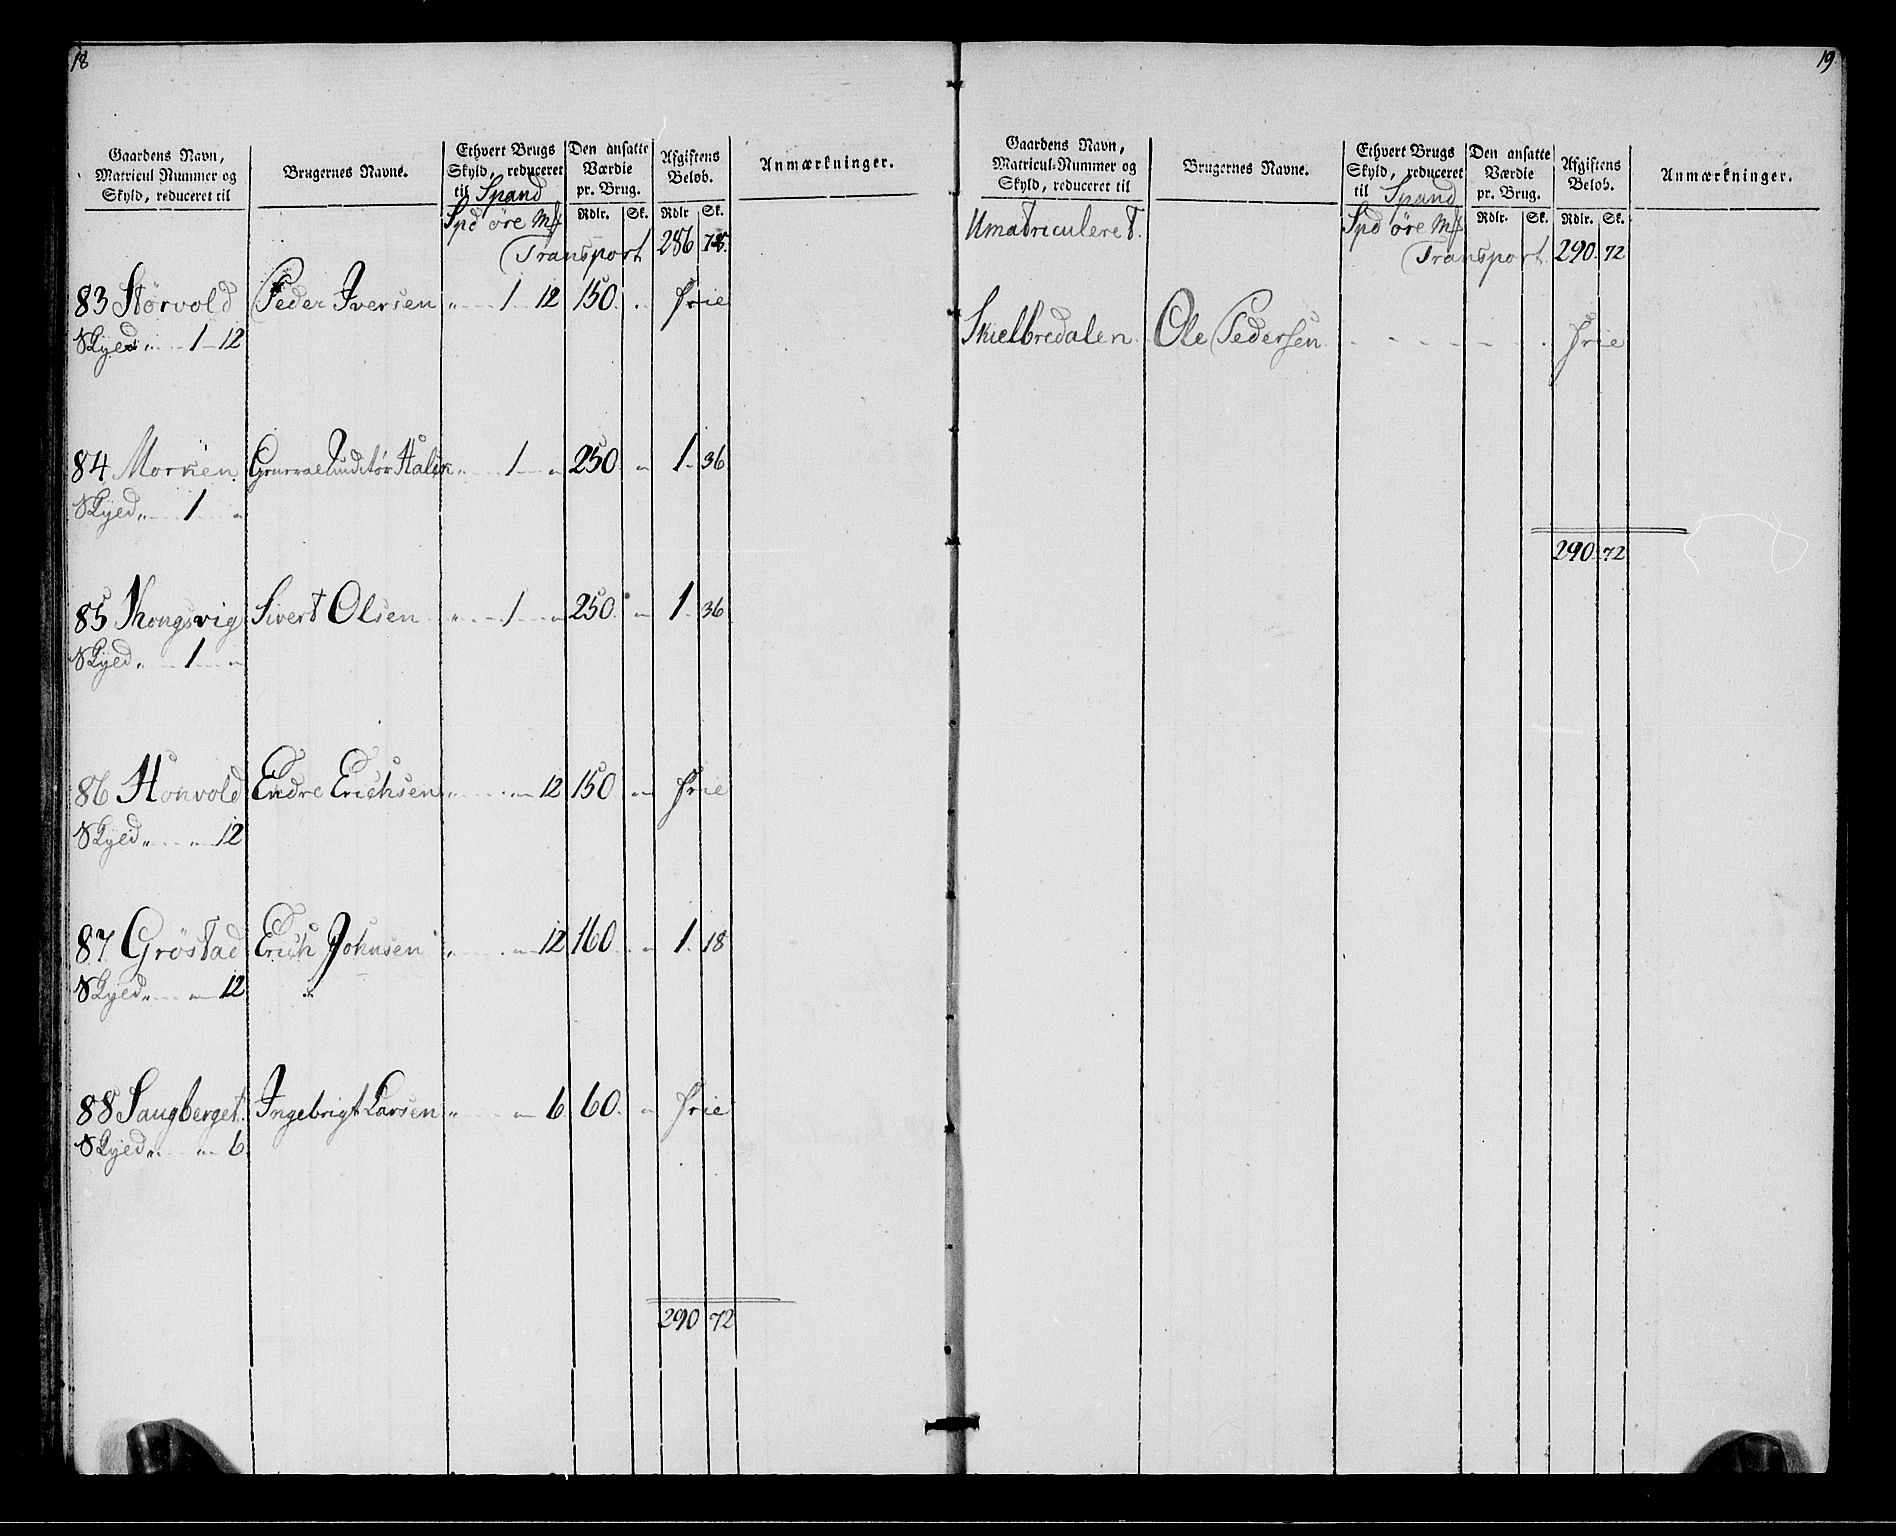 18
Gaardens Navn,
Matricul Nummer og
Skyld, reduceret til
Brugernes Navne.
Ethvert Brugs
Skyld, reduceret
til Spand
Spd øre Mf
Den ansatte
Værdie
pr. Brug.
Rdlr. Sk.
Afgiftens
Beløb.
Rdlr Sk.
Anmærkninger.
Transport 286 78.
83 Størvold Peder Iversen „ 1 12 150. „ frie
Skyld „ 1 12
84 Morken General Auditør „ 1 „ 250. „ 1. 36
Skyld „ 1 „
85 Kongsvig Sivert Olsen „ 1 „ 250. „ 1. 36
Skyld „ 1 „
86 Honvold Endre Erichsen „ „ 12 150 „ frie
Skyld „ „ 12
87 Grøstad Erich Johnsen „ „ 12 160 „ 1. 18
Skyld „ „ 12
88 Saugberget. Ingebrigt Larsen „ „ 6 60. „ frie
Skyld „ „ 6
290 72
19
Gaardens Navn,
Matricul-Nummer og
Skyld, reduceret til
Brugernes Navne.
Ethvert Brugs
Skyld, reduceret
til Spand
Spd øre Mf
Den ansatte
Værdie
pr. Brug.
Rdlr. Sk.
Afgiftens
Beløb.
Rdlr. Sk.
Anmærkninger.
Umatriculeret.
Transport 290. 72
Skielbredalen Ole Pedersen frie
290. 72